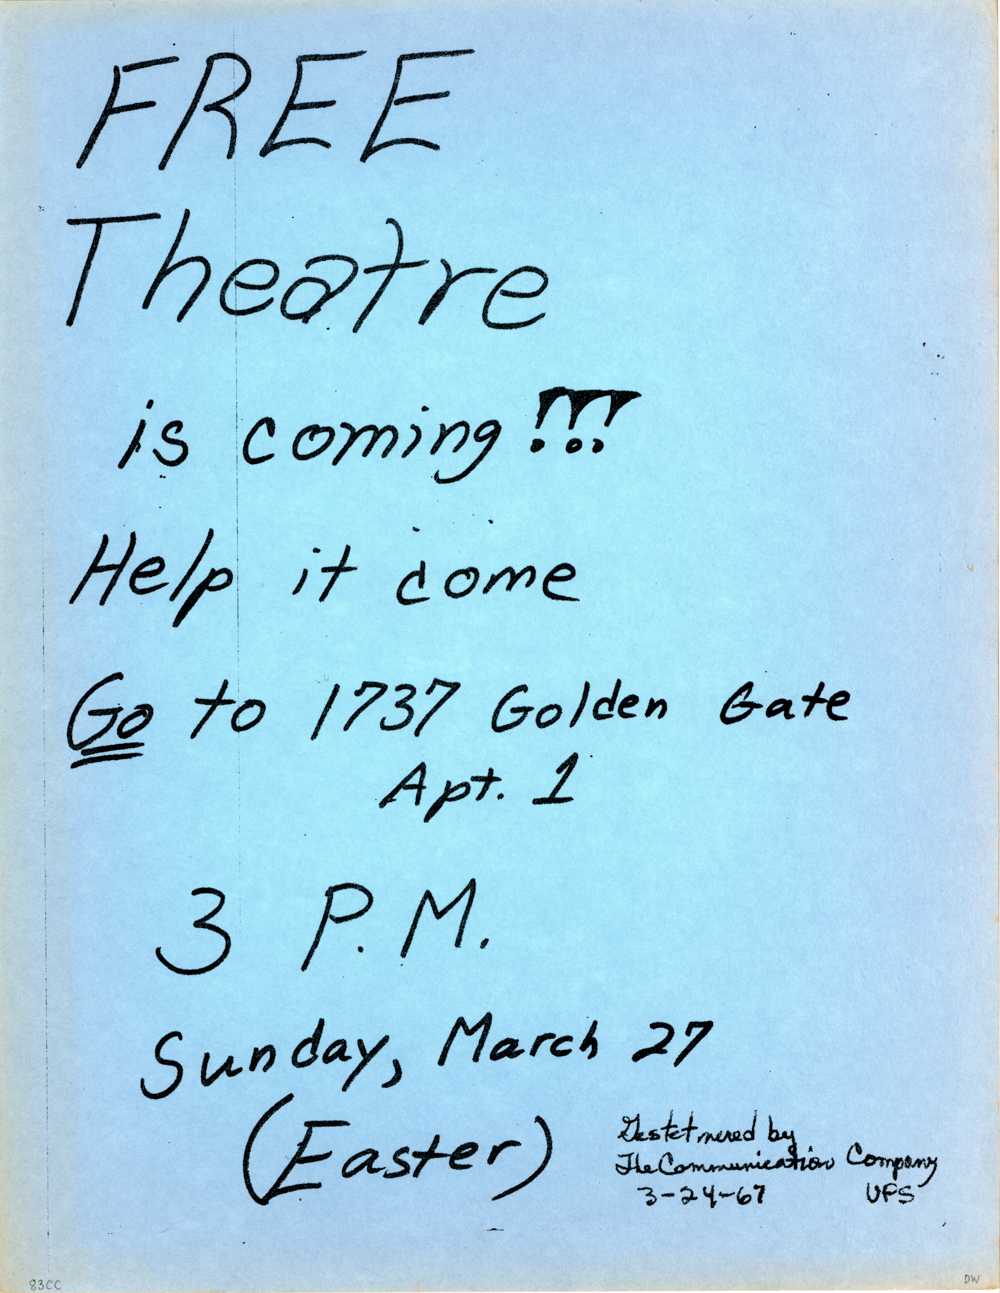 FREE
Theatre
is coming!!!
Help it come
Go to 1737 Golden Gate
Apt. 1
3 P.M.
Sunday, March 27
(Easter)
Gestetnered by
The Communication Company
3-24-67 UPS
83CC
DW